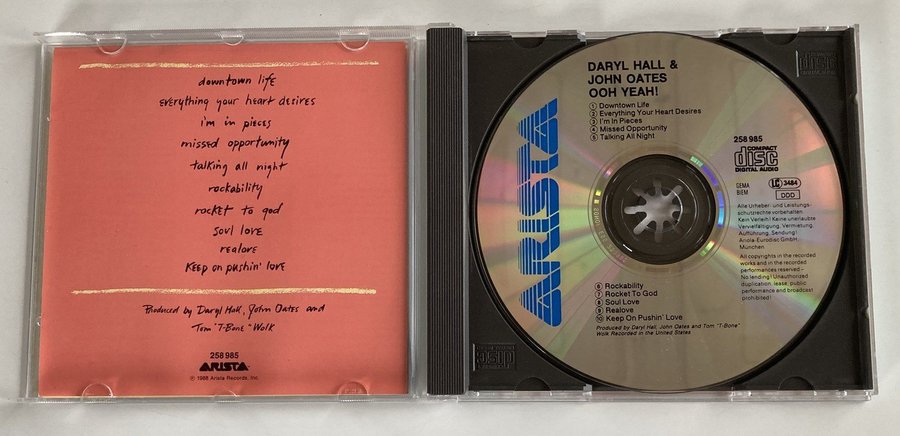 downtown life
everything your heart desires
i'm in pieces
missed opportunity
talking all night
rockability
rocket to god
soul love
realove
keep on pushin' love
Produced by Daryl Hall, John Oates and
Tom "T-Bone" Wolk
258 985
ARISTA
℗ 1988 Arista Records, Inc.
DARYL HALL &
JOHN OATES
OOH YEAH!
① Downtown Life
② Everything Your Heart Desires
③ I'm In Pieces
④ Missed Opportunity
⑤ Talking All Night
ARISTA
258 985
COMPACT
disc
DIGITAL AUDIO
GEMA
BIEM
LC 3484
DDD
Alle Urheber- und Leistungs-
schutzrechte vorbehalten.
Kein Verleih! Keine unerlaubte
Vervielfältigung, Vermietung,
Aufführung, Sendung!
Ariola-Eurodisc GmbH,
München
All copyrights in the recorded
works and in the recorded
performances reserved –
No lending! Unauthorized
duplication, lease, public
performance and broadcast
prohibited!
⑥ Rockability
⑦ Rocket To God
⑧ Soul Love
⑨ Realove
⑩ Keep On Pushin' Love
Produced by Daryl Hall, John Oates and Tom "T-Bone"
Wolk Recorded in the United States
disc
disc